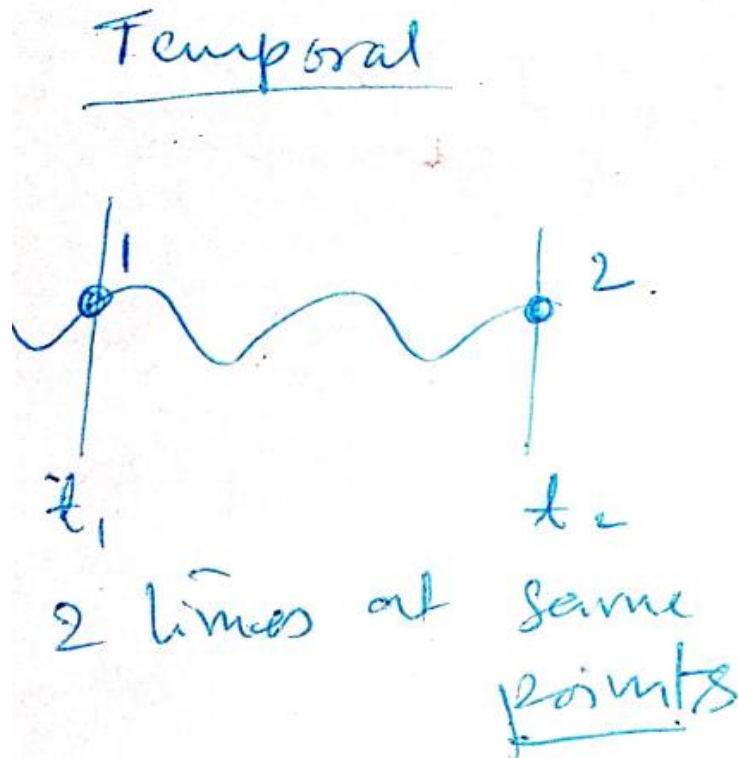 Temporal
1 2.
t₁ t₂
2 times at same
points